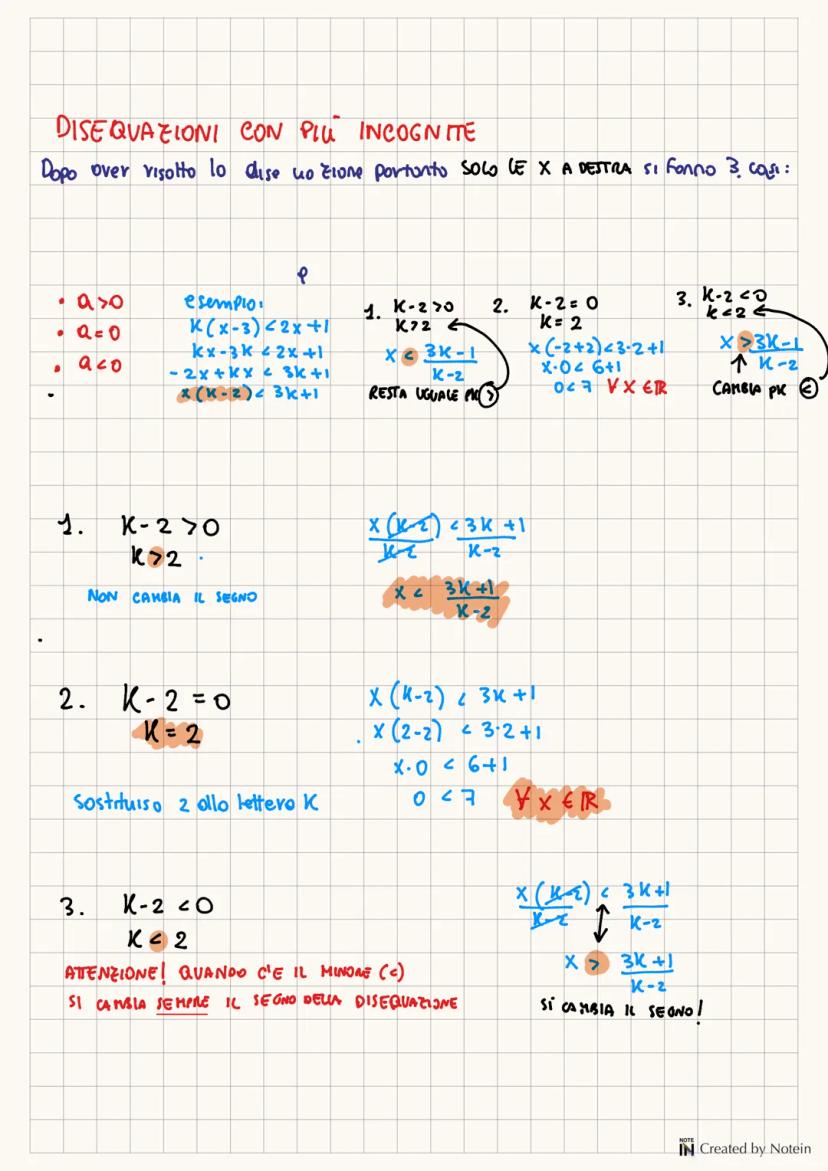 DISEQUAZIONI CON PIÙ INCOGNITE
Dopo aver risolto la disequazione portanto SOLO LE X A DESTRA si fanno 3 casi:
• a>0
• a=0
• a<0
esempio:
K(x-3)<2x+1
Kx-3K<2x+1
-2x+Kx<3K+1
x(K-2)<3K+1
1. K-2>0
K>2
x < 3K-1/K-2
RESTA UGUALE PK >
2. K-2=0
K=2
x(-2+2)<3·2+1
x·0<6+1
0<7 ∀x∈ℝ
3. K-2<0
K<2
x > 3K-1/K-2
CAMBIA PK <
1. K-2>0
K>2
NON CAMBIA IL SEGNO
x(K-2)/K-2 < 3K+1/K-2
x < 3K+1/K-2
2. K-2=0
K=2
Sostituiso 2 alla lettera K
x(K-2) < 3K+1
x(2-2) < 3·2+1
x·0 < 6+1
0<7 ∀x∈ℝ
3. K-2<0
K<2
ATTENZIONE! QUANDO C'E IL MINORE (<)
SI CAMBIA SEMPRE IL SEGNO DELLA DISEQUAZIONE
x(K-2)/K-2 < 3K+1/K-2
x > 3K+1/K-2
SI CAMBIA IL SEGNO!
NOTE IN Created by Notein